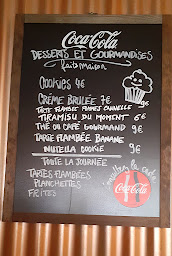 Coca-Cola
DESSERTS ET GOURMANDISES
faits maison
COOKIES 4€
CRÈME BRULÉE 7€
TARTE FLAMBÉE POMMES CANNELLE 9€
TIRAMISU DU MOMENT 6€
THÉ OU CAFÉ GOURMAND 9€
TARTE FLAMBÉE BANANE
NUTELLA COOKIE 9€
TOUTE LA JOURNÉE
TARTES FLAMBÉES
PLANCHETTES
FRITES
Coca-Cola